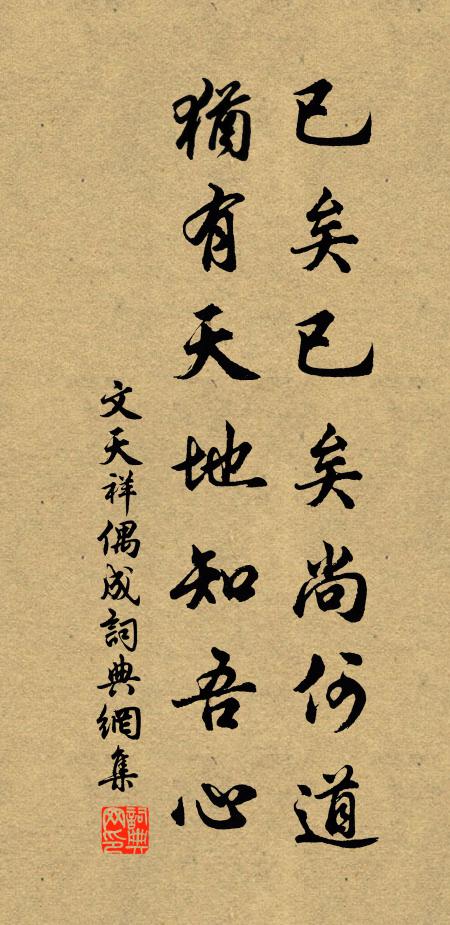 已矣已矣尚何道
猶有天地知吾心
文天祥偶成詞典網集
詞典網印